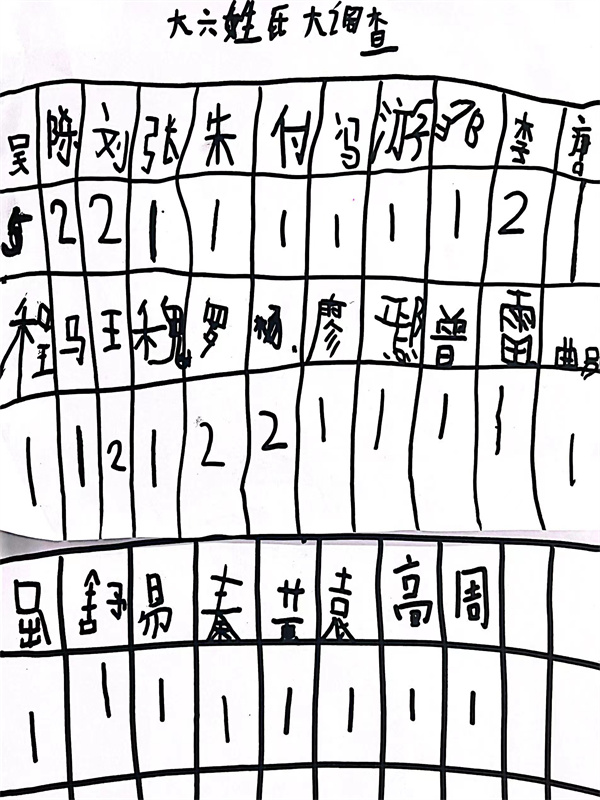 大六姓氏大调查
吴 陈 刘 张 朱 付 冯 游 邓 李 唐
5 2 2 1 1 1 1 1 1 2 1
程 马 王 魏 罗 杨 廖 鄢 曾 雷
1 1 2 1 2 2 1 1 1 1 1
舒 易 秦 黄 袁 高 周
1 1 1 1 1 1 1 1